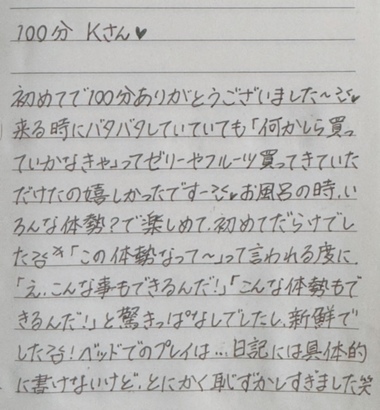 100分 Kさん♥
初めてで100分ありがとうございました〜♥
来る時にバタバタしていていても「何かしら買っ
ていかなきゃ」ってゼリーやフルーツ買ってきていた
だけたの嬉しかったですー♥お風呂の時、い
ろんな体勢?で楽しめて、初めてだらけでし
た「この体勢なって〜」って言われる度に
「え、こんな事もできるんだ!」「こんな体勢もで
きるんだ!」と驚きっぱなしでしたし、新鮮で
した!ベッドでのプレイは…日記には具体的
に書けないけど、とにかく恥ずかしすぎました笑